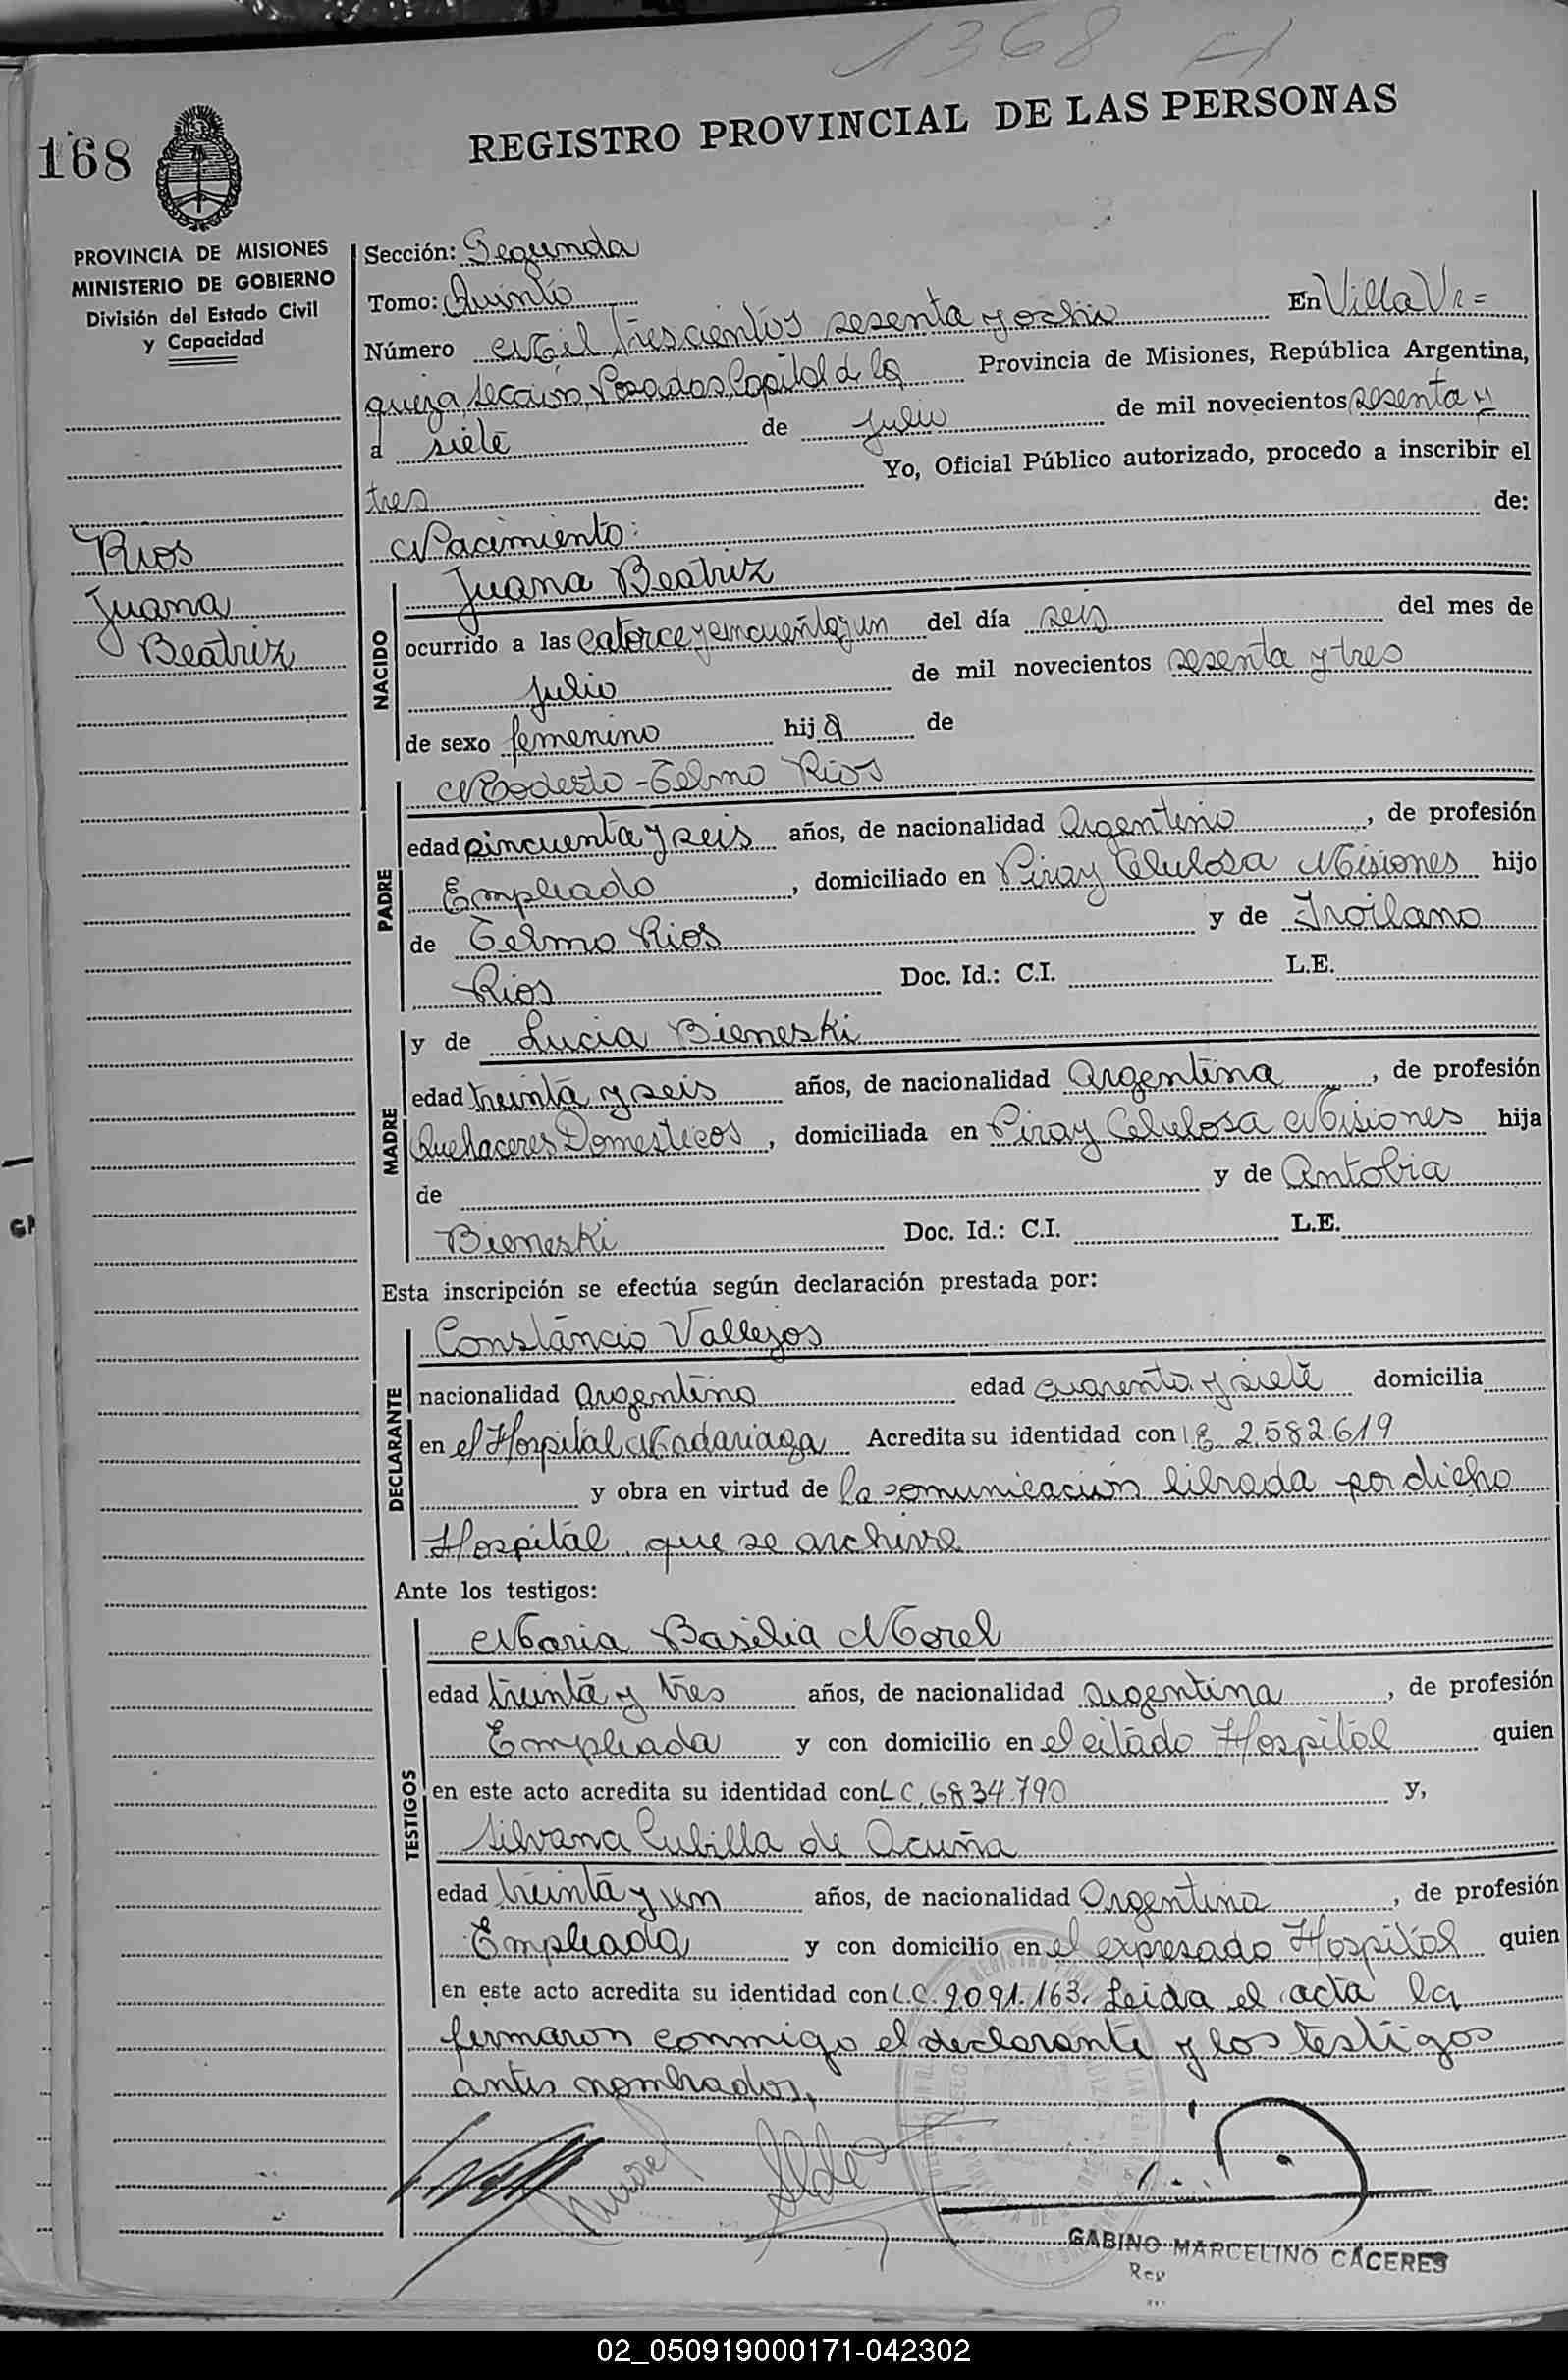 1368
168
REGISTRO PROVINCIAL DE LAS PERSONAS
PROVINCIA DE MISIONES
MINISTERIO DE GOBIERNO
División del Estado Civil
y Capacidad
Rios
Juana
Beatriz
Sección: Segunda
Tomo: Quinto
Número Mil trescientos sesenta y ocho En Villa Ur=
quiza, sección, Posadas, Capital de la Provincia de Misiones, República Argentina,
a siete de julio de mil novecientos sesenta y
tres Yo, Oficial Público autorizado, procedo a inscribir el
Nacimiento: de:
NACIDO
Juana Beatriz
ocurrido a las catorce y cincuenta y un del día seis del mes de
julio de mil novecientos sesenta y tres
de sexo femenino hija de
PADRE
Modesto-Telmo Rios
edad cincuenta y seis años, de nacionalidad Argentino, de profesión
Empleado, domiciliado en Piray Celulosa Misiones hijo
de Telmo Rios y de Troilana
Rios Doc. Id.: C.I. L.E.
MADRE
y de Lucia Bieneski
edad treinta y seis años, de nacionalidad Argentina, de profesión
Quehaceres Domesticos, domiciliada en Piray Celulosa Misiones hija
de y de Antolia
Bieneski Doc. Id.: C.I. L.E.
Esta inscripción se efectúa según declaración prestada por:
DECLARANTE
Constancio Vallejos
nacionalidad argentino edad cuarenta y siete domicilia
en el Hospital Madariaga Acredita su identidad con 2.582.619
y obra en virtud de la comunicación librada por dicho
Hospital que se archiva
Ante los testigos:
TESTIGOS
Maria Basilia Morel
edad treinta y tres años, de nacionalidad argentina, de profesión
Empleada y con domicilio en el citado Hospital quien
en este acto acredita su identidad con L C. 6834.790 y,
Silvana Cubilla de Acuña
edad treinta y un años, de nacionalidad Argentina, de profesión
Empleada y con domicilio en el expresado Hospital quien
en este acto acredita su identidad con L.C. 9091.163. Leida el acta la
firmaron conmigo el declarante y los testigos
antes nombrados,
GABINO MARCELINO CACERES
02_050919000171-042302